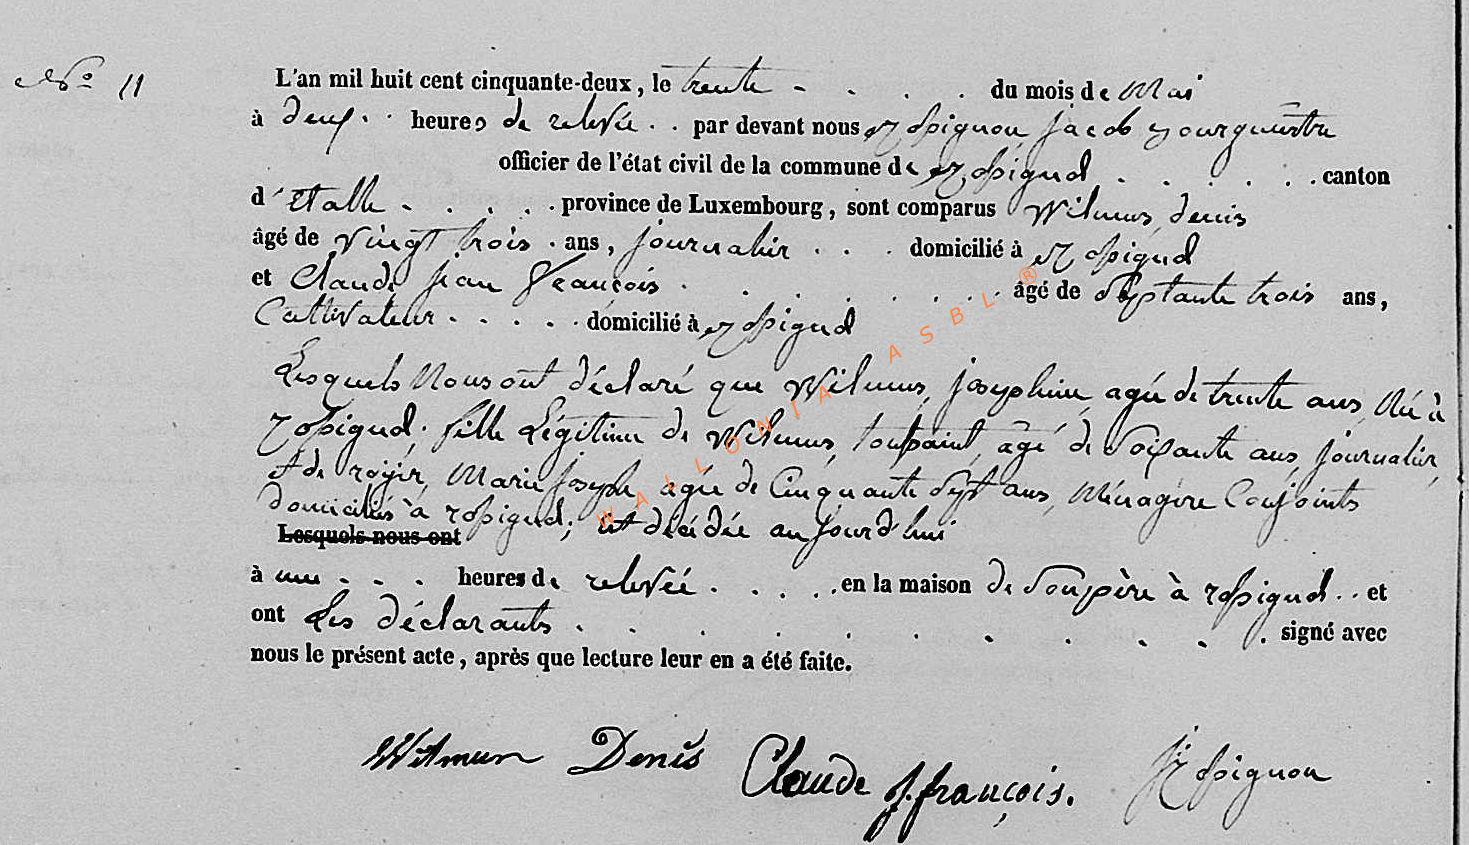 N° 11
L'an mil huit cent cinquante-deux, le trente . . . . du mois de Mai
à deux . . heures de relevée . . par devant nous Rossignon, Jacob Bourguemestre
officier de l'état civil de la commune de Rossignol . . . . . . canton
d'Etalle . . . . . province de Luxembourg, sont comparus Wilmus, denis
âgé de vingt trois . ans, journalier . . . domicilié à Rossignol
et Claude jean François . . . . . . . . âgé de Septante trois ans,
Cultivateur . . . . . domicilié à Rossignol
Lesquels Nous ont déclaré que Wilmus, josephine, agée de trente ans, Née à
rossignol, fille Légitime de Wilmus, toussaint, âgé de Soixante ans, journalier,
et de rogier, Marie joseph, agée de Cinquante Sept ans, Ménagère Conjoints
domiciliés à rossignol; est décédée aujourd'hui
Lesquels nous ont
à une . . . heures de relevée . . . . . en la maison de Son père à rossignol . . et
ont Les déclarants . . . . . . . . . . signé avec
nous le présent acte, après que lecture leur en a été faite.
Wilmus Denis Claude j. françois. J Rossignon
WALLONIA ASBL ®